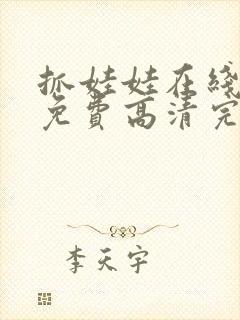 抓娃娃在线
免费高清完
李天宇